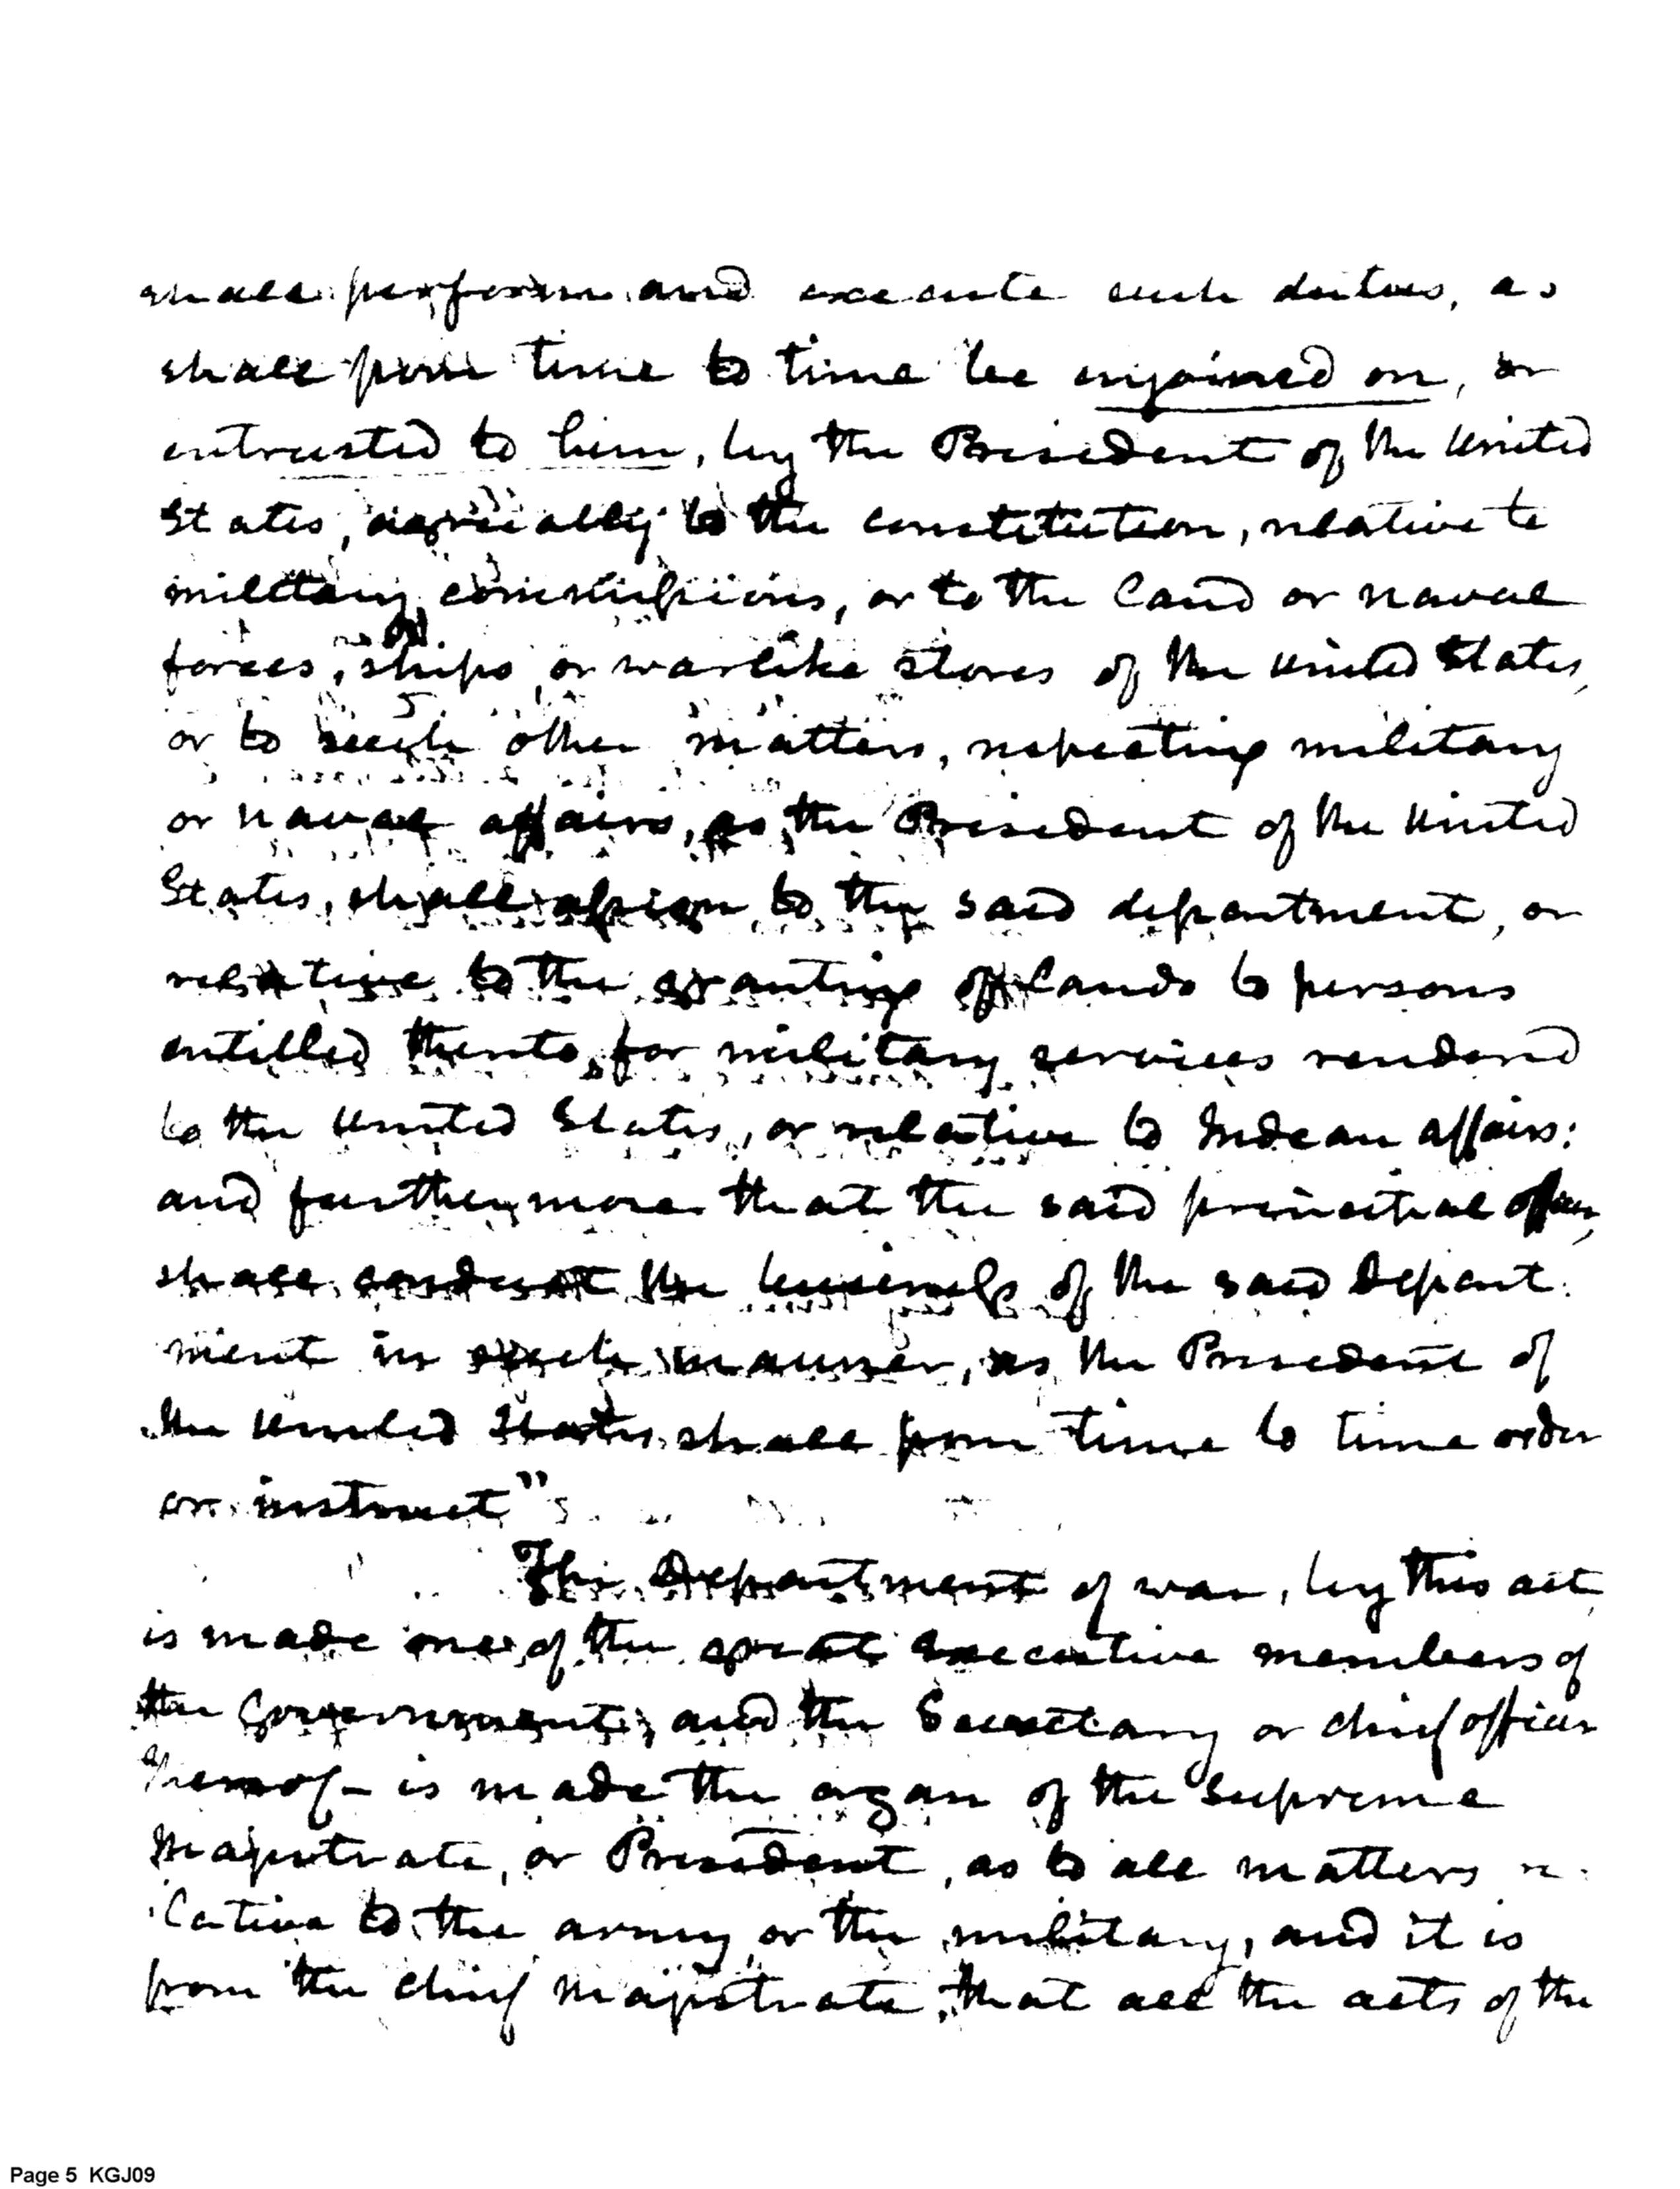 shall perform and execute such duties, as
shall from time to time be enjoined on, or
entrusted to him, by the President of the United
States, agreeably to the constitution, relative to
military commissions, or to the land or naval
forces, ships, or warlike stores of the United States,
or to such other matters, respecting military
or naval affairs, as the President of the United
States, shall assign to the said department, or
relative to the granting of lands to persons
entitled thereto, for military services rendered
to the United States, or relative to Indean affairs:
and furthermore that the said principal officer,
shall conduct the business of the said Depart-
ment in such manner, as the President of
the United States shall from time to time order
or instruct"
The Department of war, by this act
is made one of the great Executive members of
the Government, and the Secretary or chief officer
thereof - is made the organ of the Supreme
Magistrate, or President, as to all matters re-
lative to the army or the military, and it is
from the chief Magistrate, that all the acts of the
Page 5 KGJ09